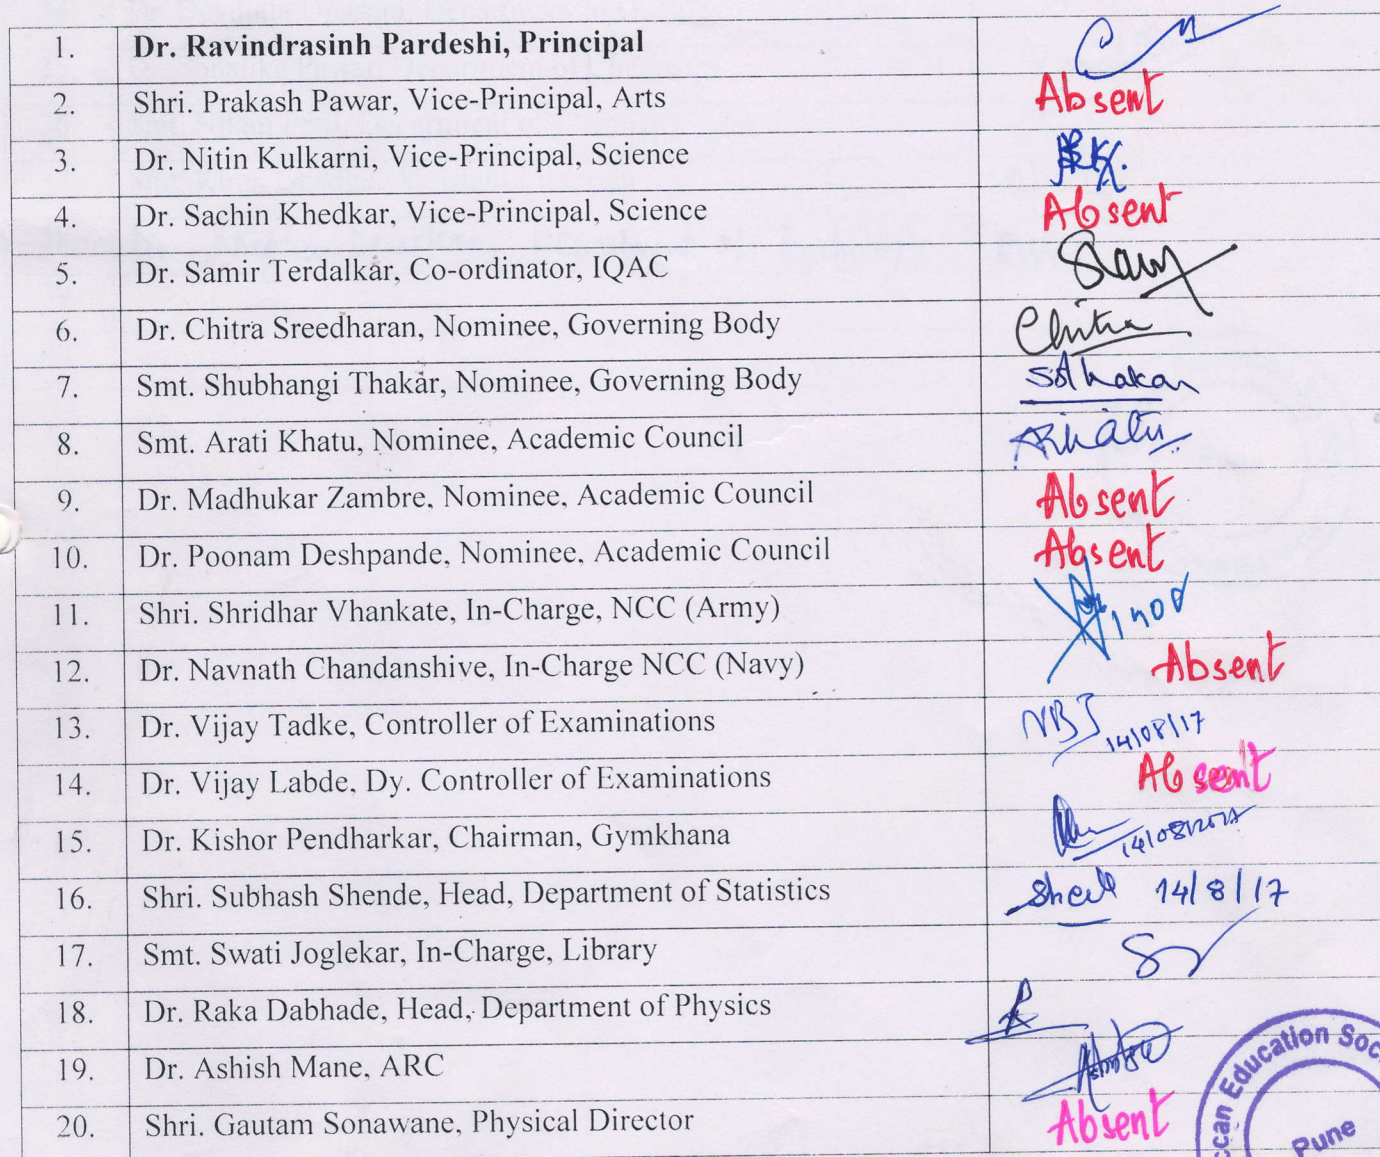 1. Dr. Ravindrasinh Pardeshi, Principal
2. Shri. Prakash Pawar, Vice-Principal, Arts Absent
3. Dr. Nitin Kulkarni, Vice-Principal, Science
4. Dr. Sachin Khedkar, Vice-Principal, Science Absent
5. Dr. Samir Terdalkar, Co-ordinator, IQAC
6. Dr. Chitra Sreedharan, Nominee, Governing Body Chitra
7. Smt. Shubhangi Thakar, Nominee, Governing Body
8. Smt. Arati Khatu, Nominee, Academic Council
9. Dr. Madhukar Zambre, Nominee, Academic Council Absent
10. Dr. Poonam Deshpande, Nominee, Academic Council Absent
11. Shri. Shridhar Vhankate, In-Charge, NCC (Army)
12. Dr. Navnath Chandanshive, In-Charge NCC (Navy) Absent
13. Dr. Vijay Tadke, Controller of Examinations 14/08/17
14. Dr. Vijay Labde, Dy. Controller of Examinations Absent
15. Dr. Kishor Pendharkar, Chairman, Gymkhana 14/08/2017
16. Shri. Subhash Shende, Head, Department of Statistics 14/8/17
17. Smt. Swati Joglekar, In-Charge, Library
18. Dr. Raka Dabhade, Head, Department of Physics
19. Dr. Ashish Mane, ARC
20. Shri. Gautam Sonawane, Physical Director Absent
Education
Pune